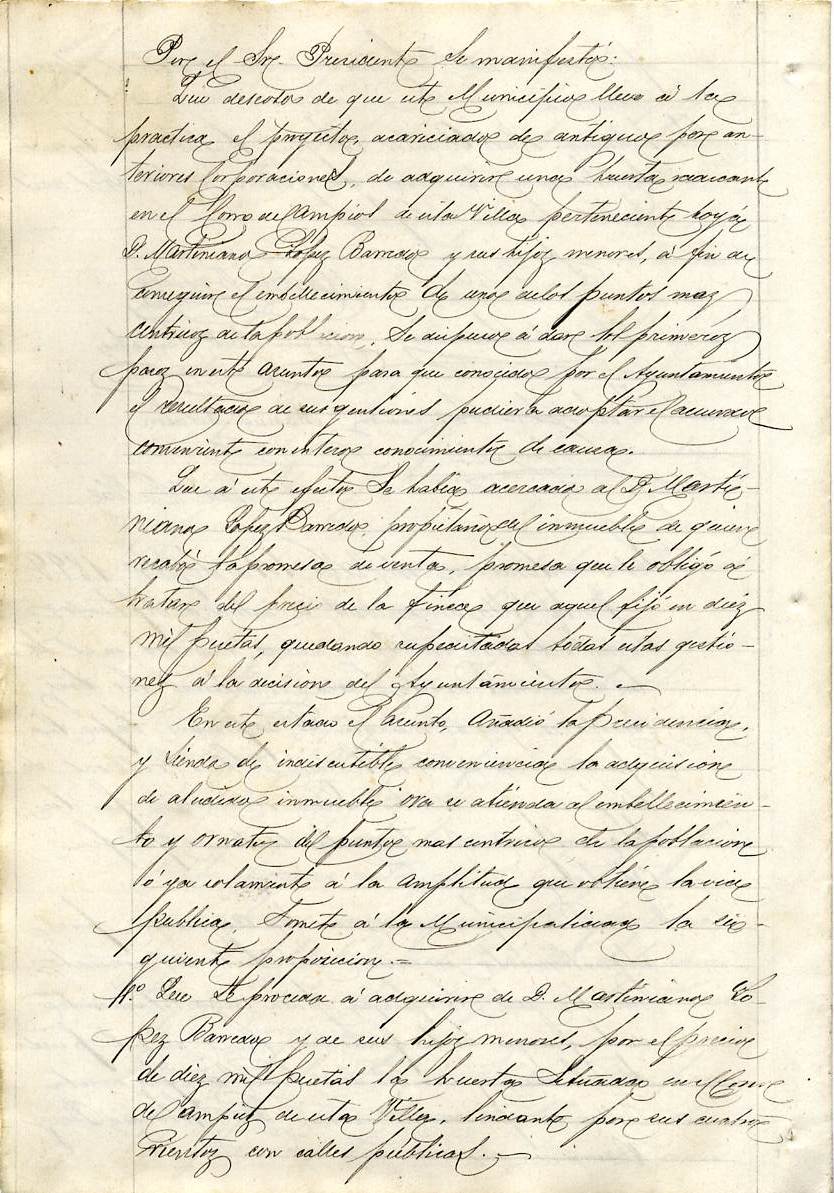 Por el Sr. Presidente Se manifestó:
Que deseoso de que este Municipio lleve á la
practica el proyecto, acariciado de antiguo por an-
teriores Corporaciones, de adquirir una huerta radicante
en el Corro del Campiol de esta Villa perteneciente hoy á
D. Martiniano Lopez Barredo y sus hijos menores, á fin de
conseguir el embellecimiento de uno delos puntos mas
centricos de la poblacion, Se dispuso á dar los primeros
pasos en este asunto para que conocido por el Ayuntamiento
el resultado de sus gestiones pudiera adoptar el acuerdo
conveniente con entero conocimiento de causa.
Que á este efecto Se habia acercado al D. Marti-
niano Lopez Barredo, propietario del inmueble de quien
recabó la promesa de venta, promesa que le obligó á
tratar del precio de la finca que aquel fijó en diez
mil pesetas, quedando supeditadas todas estas gestio-
nes á la decision del Ayuntamiento. —
En este estado el asunto, añadió la presidencia,
y siendo de indiscutible conveniencia la adquisicion
de aludido inmueble ora se atienda al embellecimien-
to y ornato del punto mas centrico de la poblacion
ó ya solamente á la amplitud que obtiene la via
publica, Somete á la Municipalidad la si-
guiente proposicion. =
1º Que Se proceda á adquirir de D. Martiniano Lo-
pez Barredo y de sus hijos menores, por el precio
de diez mil pesetas la huerta Situada en el Corro
del Campiz de esta Villa, lindante por sus cuatro
vientos con calles públicas. —